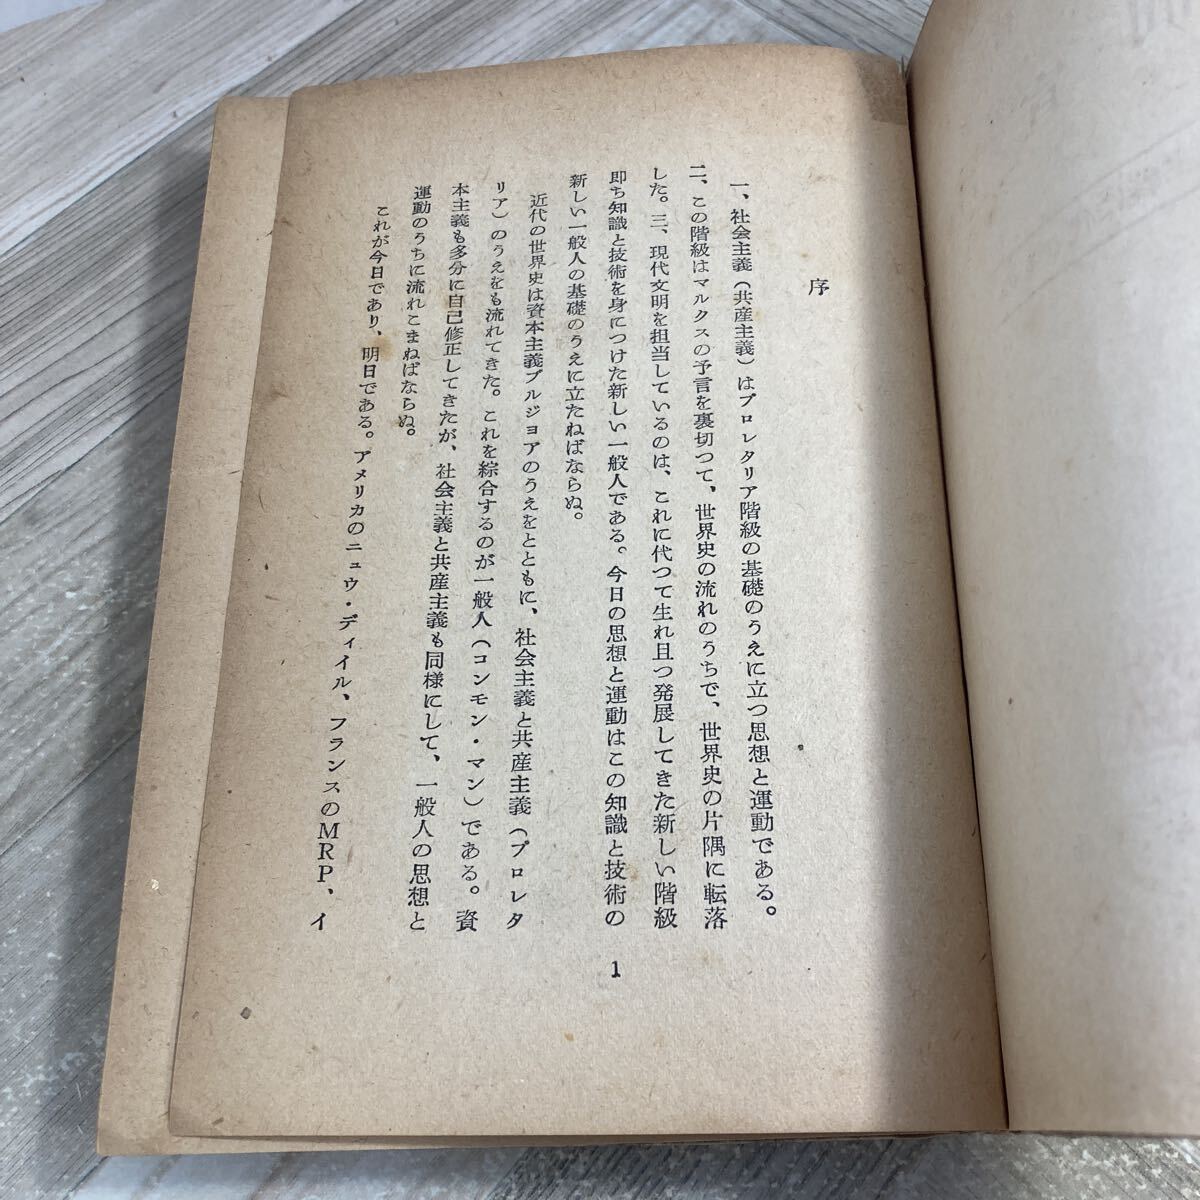 序
一、社会主義（共産主義）はプロレタリア階級の基礎のうえに立つ思想と運動である。
二、この階級はマルクスの予言を裏切つて、世界史の流れのうちで、世界史の片隅に転落
した。三、現代文明を担当しているのは、これに代つて生れ且つ発展してきた新しい階級
即ち知識と技術を身につけた新しい一般人である。今日の思想と運動はこの知識と技術の
新しい一般人の基礎のうえに立たねばならぬ。
近代の世界史は資本主義ブルジョアのうえをとともに、社会主義と共産主義（プロレタ
リア）のうえをも流れてきた。これを綜合するのが一般人（コンモン・マン）である。資
本主義も多分に自己修正してきたが、社会主義と共産主義も同様にして、一般人の思想と
運動のうちに流れこまねばならぬ。
これが今日であり、明日である。アメリカのニュウ・ディイル、フランスのMRP、イ
1